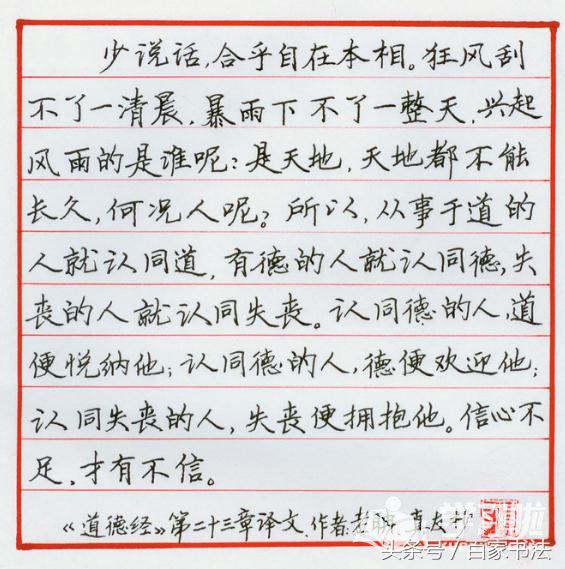 少说话,合乎自在本相。狂风刮
不了一清晨,暴雨下不了一整天,兴起
风雨的是谁呢?是天地,天地都不能
长久,何况人呢?所以,从事于道的
人就认同道,有德的人就认同德,失
丧的人就认同失丧。认同德的人,道
便悦纳他;认同德的人,德便欢迎他;
认同失丧的人,失丧便拥抱他。信心不
足,才有不信。
《道德经》第二十三章译文.作者:老聃
头条号/百家书法